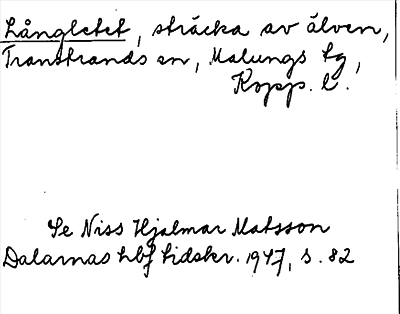 Långletet, sträcka av älven,
Transtrands sn, Malungs tg,
Kopp. l.
Se Niss Hjalmar Matsson
Dalarnas hbf tidskr. 1947, s. 82